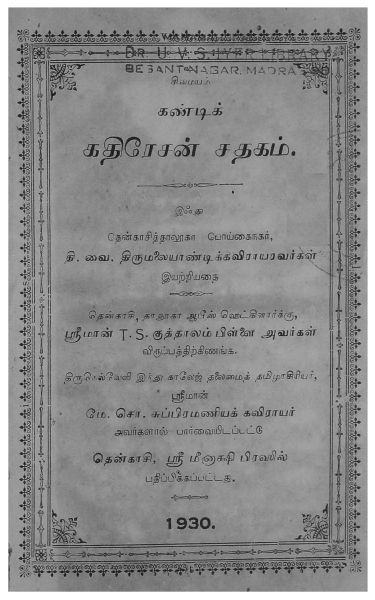 DR. U. V. S. IYER LIBRARY
BESANT NAGAR, MADRA
சிவமயம்
கண்டிக்
கதிரேசன் சதகம்.
இஃது
தென்காசித்தாலூகா பொய்கைநகர்,
தி. வை. திருமலையாண்டிக்கவிராயரவர்கள்
இயற்றியதை
தென்காசி, தாலூகா ஆபீஸ் ஹெட்கிளார்க்கு,
ஸ்ரீமான் T. S. குத்தாலம்பிள்ளை அவர்கள்
விருப்பத்திற்கிணங்க.
திருநெல்வேலி இந்து காலேஜ் தலைமைத் தமிழாசிரியர்,
ஸ்ரீமான்
மே. சொ. சுப்பிரமணியக் கவிராயர்
அவர்களால் பார்வையிடப்பட்டு
தென்காசி, ஸ்ரீ மீனாக்ஷி பிரஸில்
பதிப்பிக்கப்பட்டது.
1930.